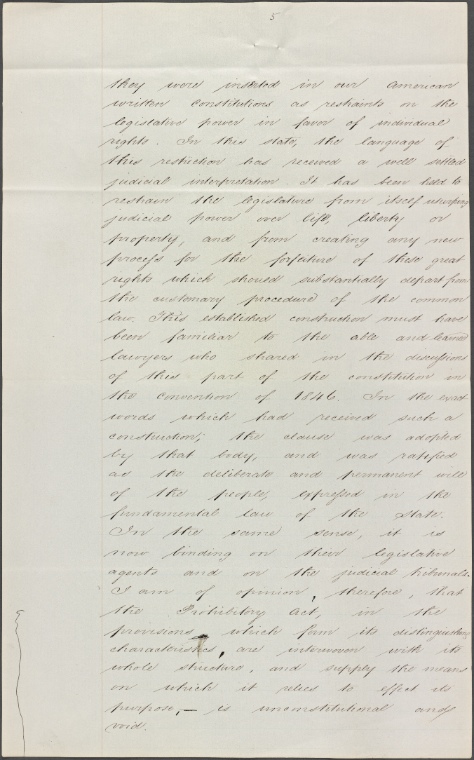 5
they were inserted in our American
written constitutions as restraints on the
legislative power in favor of individual
rights. In this state, the language of
this restriction has received a well settled
judicial interpretation. It has been held to
restrain the legislature from itself usurping
judicial power over life, liberty or
property, and from creating any new
process for the forfeiture of these great
rights which should substantially depart from
the customary procedure of the common
law. This established construction must have
been familiar to the able and learned
lawyers who shared in the discussions
of this part of the constitution in
the convention of 1846. In the exact
words which had received such a
construction, the clause was adopted
by that body, and was ratified
as the deliberate and permanent will
of the people, expressed in the
fundamental law of the State.
In the same sense, it is
now binding on their legislative
agents and on the judicial tribunals.
I am of opinion, therefore, that
the Prohibitory Act, in the
provisions, which form its distinguishing
characteristics, are interwoven with its
whole structure, and supply the means
on which it relies to effect its
purpose,— is unconstitutional and
void.